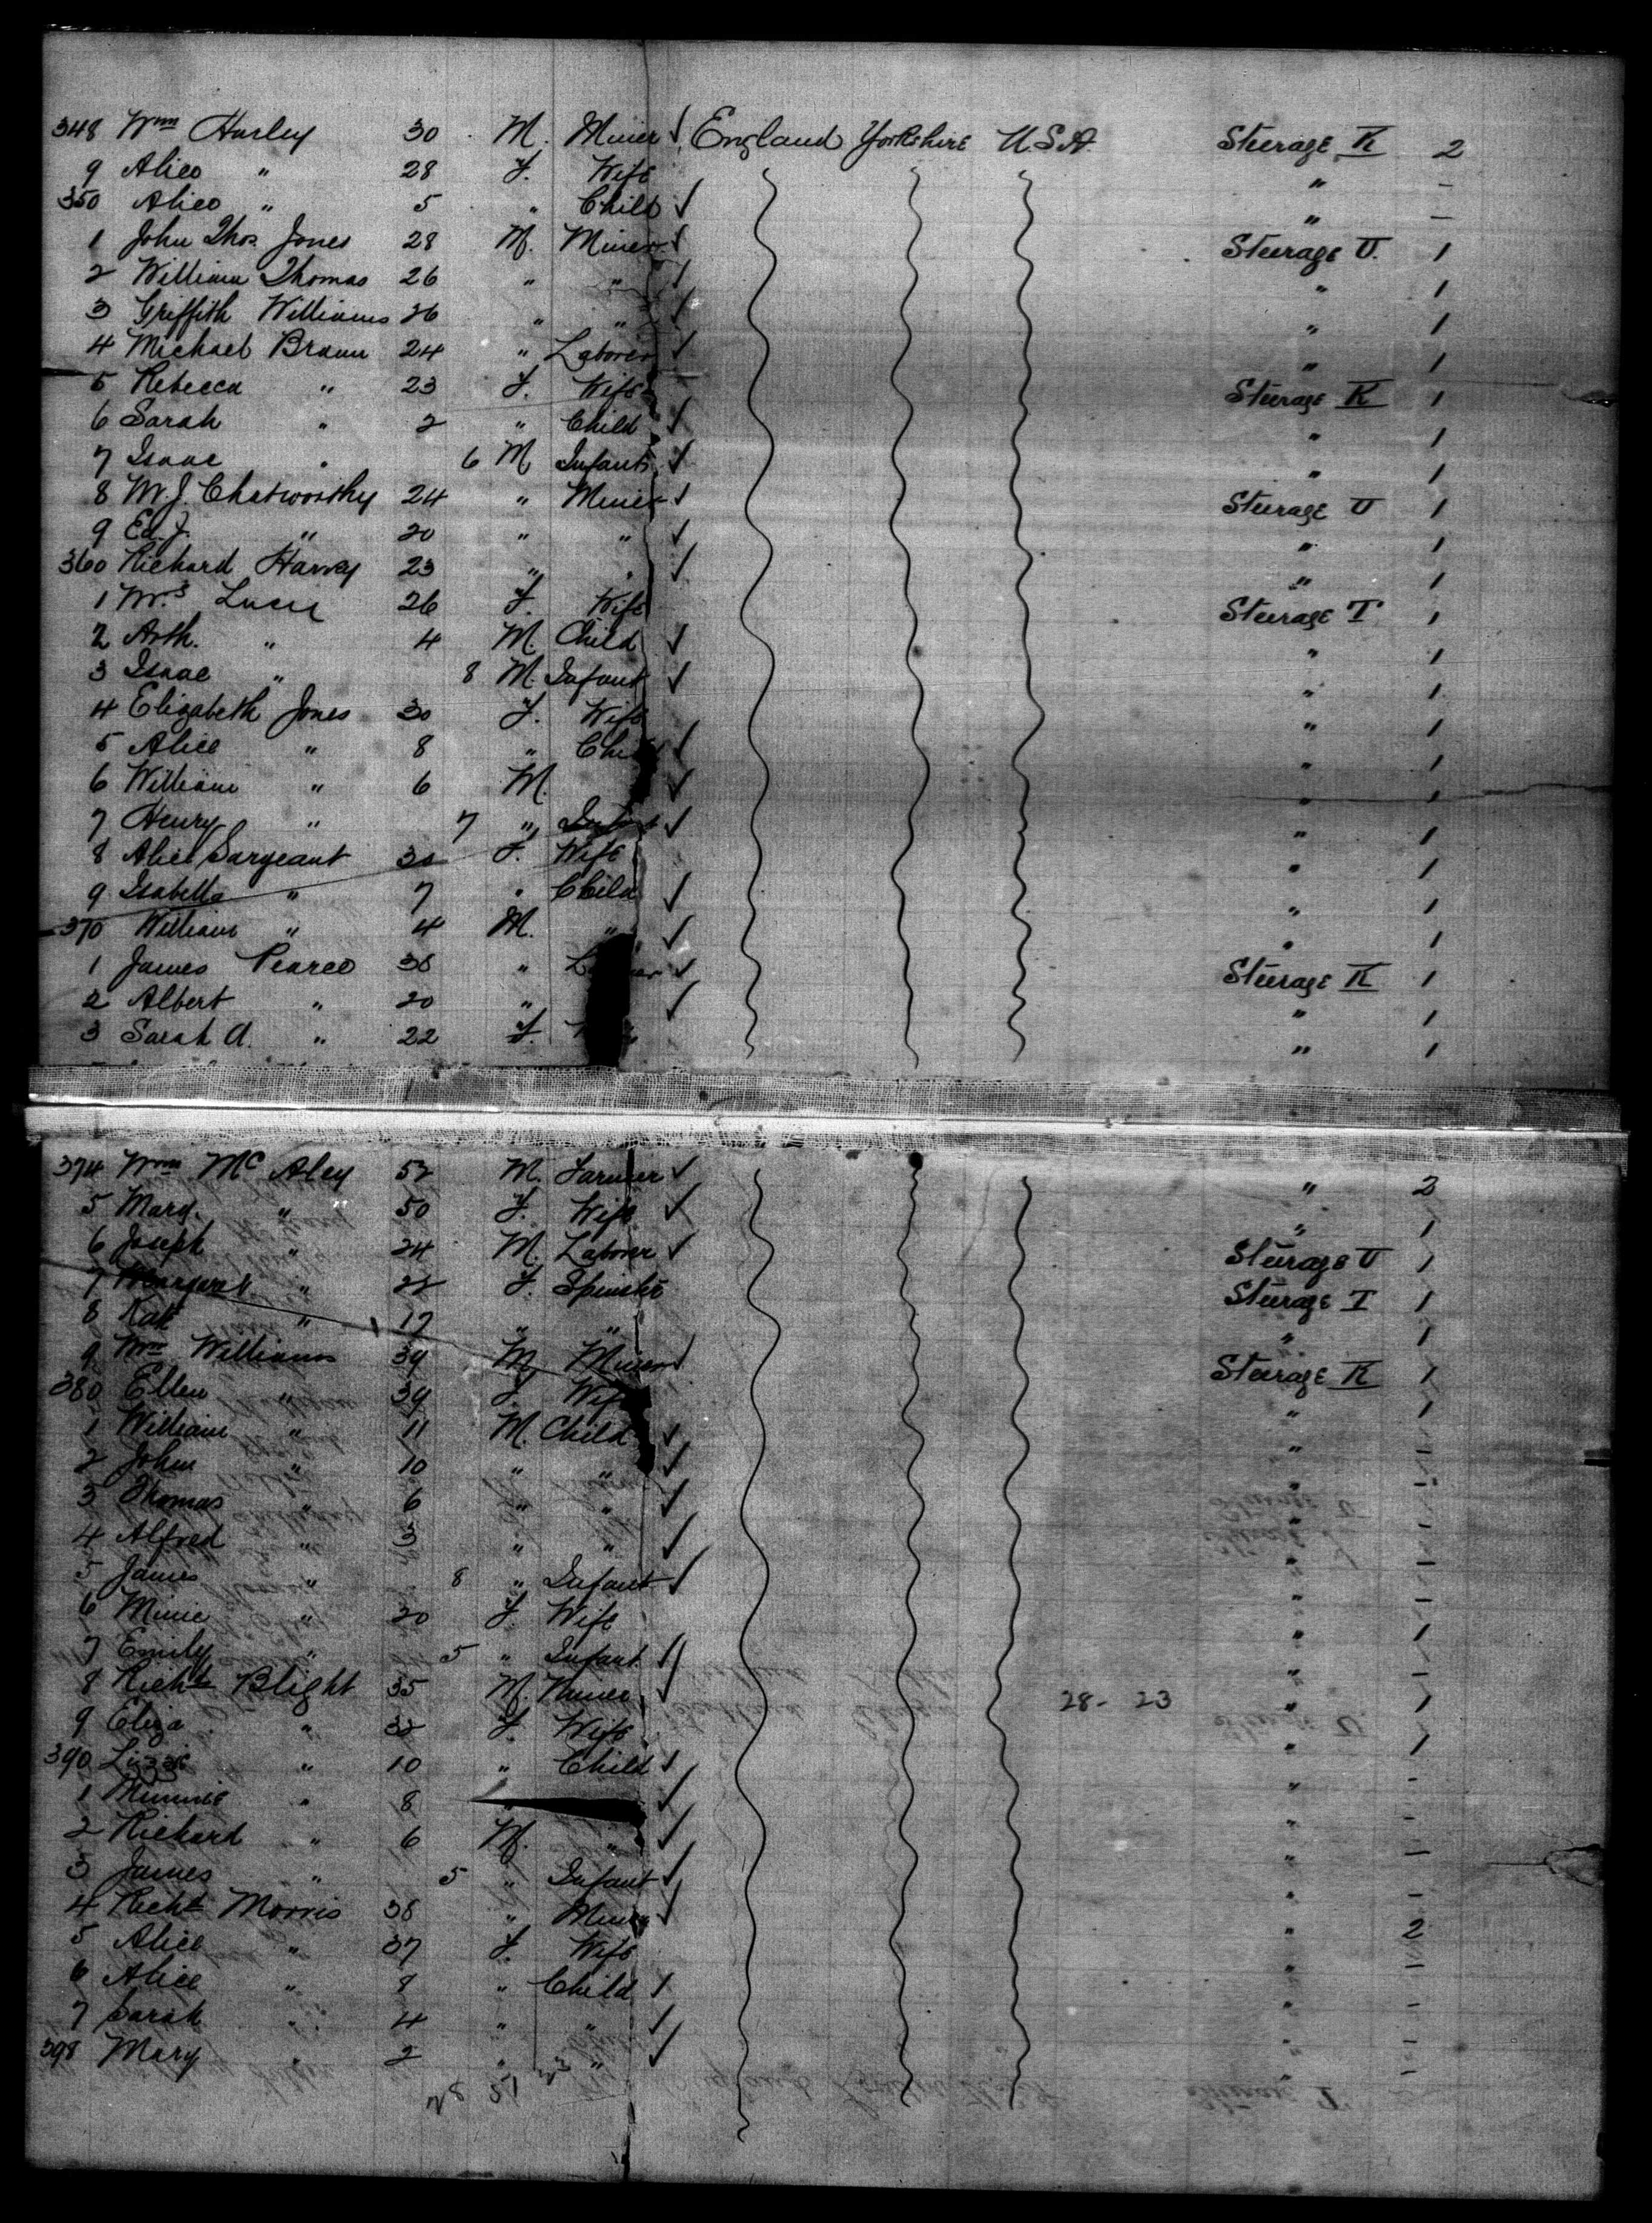 348 Wm Hurley 30 M. Miner ✓ England Yorkshire U.S.A. Steerage K 2
9 Alice " 28 F. Wife " –
350 Alice " 5 " Child ✓ " –
1 John Thos. Jones 28 M. Miner ✓ Steerage U. 1
2 William Thomas 26 " " ✓ " 1
3 Griffith Williams 26 " " ✓ " 1
4 Michael Braun 24 " Laborer ✓ " 1
5 Rebecca " 23 F. Wife Steerage K 1
6 Sarah " 2 " Child ✓ " 1
7 Isaac " 6 M Infant ✓ " 1
8 W.J. Chatworthy 24 " Miner ✓ Steerage U 1
9 Ed. J. " 20 " " ✓ " 1
360 Richard Harvey 23 " " ✓ " 1
1 Mrs Luce 26 F. Wife Steerage T 1
2 Arth. " 4 M. Child ✓ " 1
3 Isaac " 8 M. Infant ✓ " 1
4 Elizabeth Jones 30 F. Wife " 1
5 Alice " 8 " Chi ✓ " 1
6 William " 6 M. ✓ " 1
7 Henry " 7 " Infant ✓ " 1
8 Alice Sargeant F. Wife " 1
9 Isabella " 7 " Child ✓ " 1
370 William " 4 M. " ✓ " 1
1 James Pearce 38 " ✓ Steerage K 1
2 Albert " 20 " ✓ " 1
3 Sarah A. " 22 F. " 1
374 Wm McAley 52 M. Farmer ✓ " 2
5 Marg. " 50 F. Wife ✓ " 1
6 Joseph " 24 M. Laborer ✓ Steerage U 1
7 Margaret " 22 F. Spinster Steerage T 1
8 Kate " 19 " " " 1
9 Wm Williams 39 M Miner ✓ Steerage K 1
380 Ellen " 39 F. Wife " 1
1 William " 11 M. Child ✓ " –
2 John " 10 " " ✓ " –
3 Thomas " 6 " " ✓ " –
4 Alfred " 3 " " ✓ " –
5 James " 8 " Infant ✓ " –
6 Minie " 20 F. Wife " 1
7 Emily " 5 " Infant ✓ " –
8 Richd Blight 35 M. Miner ✓ 28- 23 " 1
9 Eliza " 32 F. Wife " 1
390 Lizzie " 10 " Child ✓ " -
1 Minnie " 8 ✓ " -
2 Richard " 6 M. " ✓ " –
3 James " 5 " Infant ✓ " –
4 Richd Morris 38 " Miner ✓ " 2
5 Alice " 37 F. Wife " –
6 Alice " 8 " Child ✓ " -
7 Sarah " 4 " " ✓ " –
398 Mary " 2 " " ✓ " –